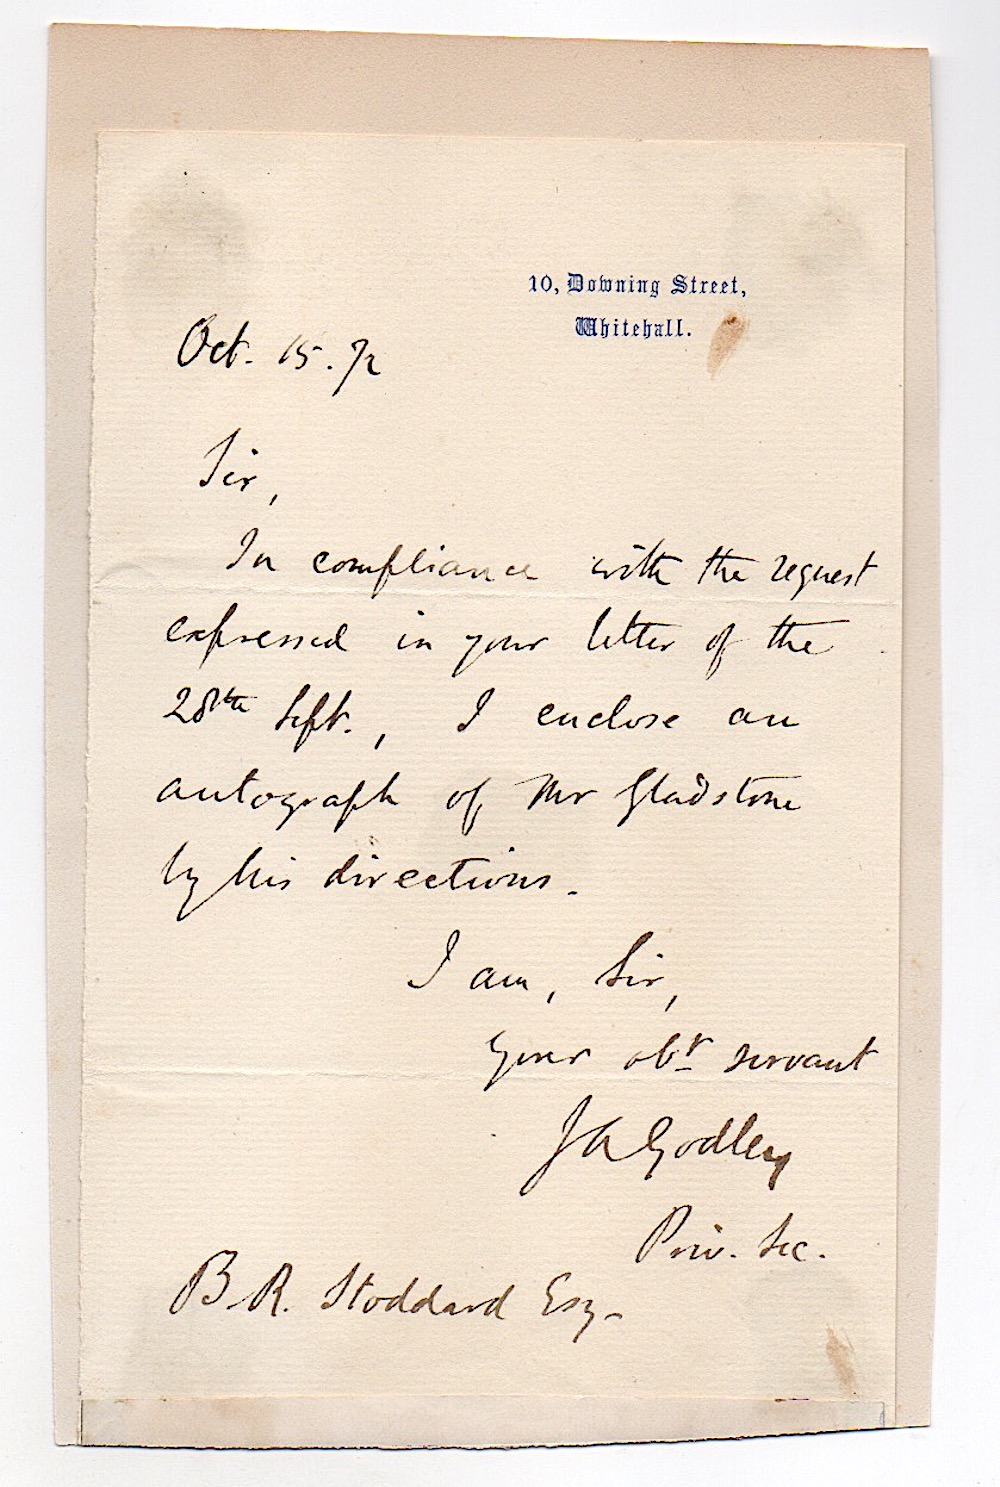 10, Downing Street,
Whitehall.
Oct. 15. 72
Sir,
In compliance with the request
expressed in your letter of the
28th Sept., I enclose an
autograph of Mr Gladstone
by his directions.
I am, Sir,
Your obt servant
J A Godley
Priv. Sec.
B. R. Stoddard Esq.